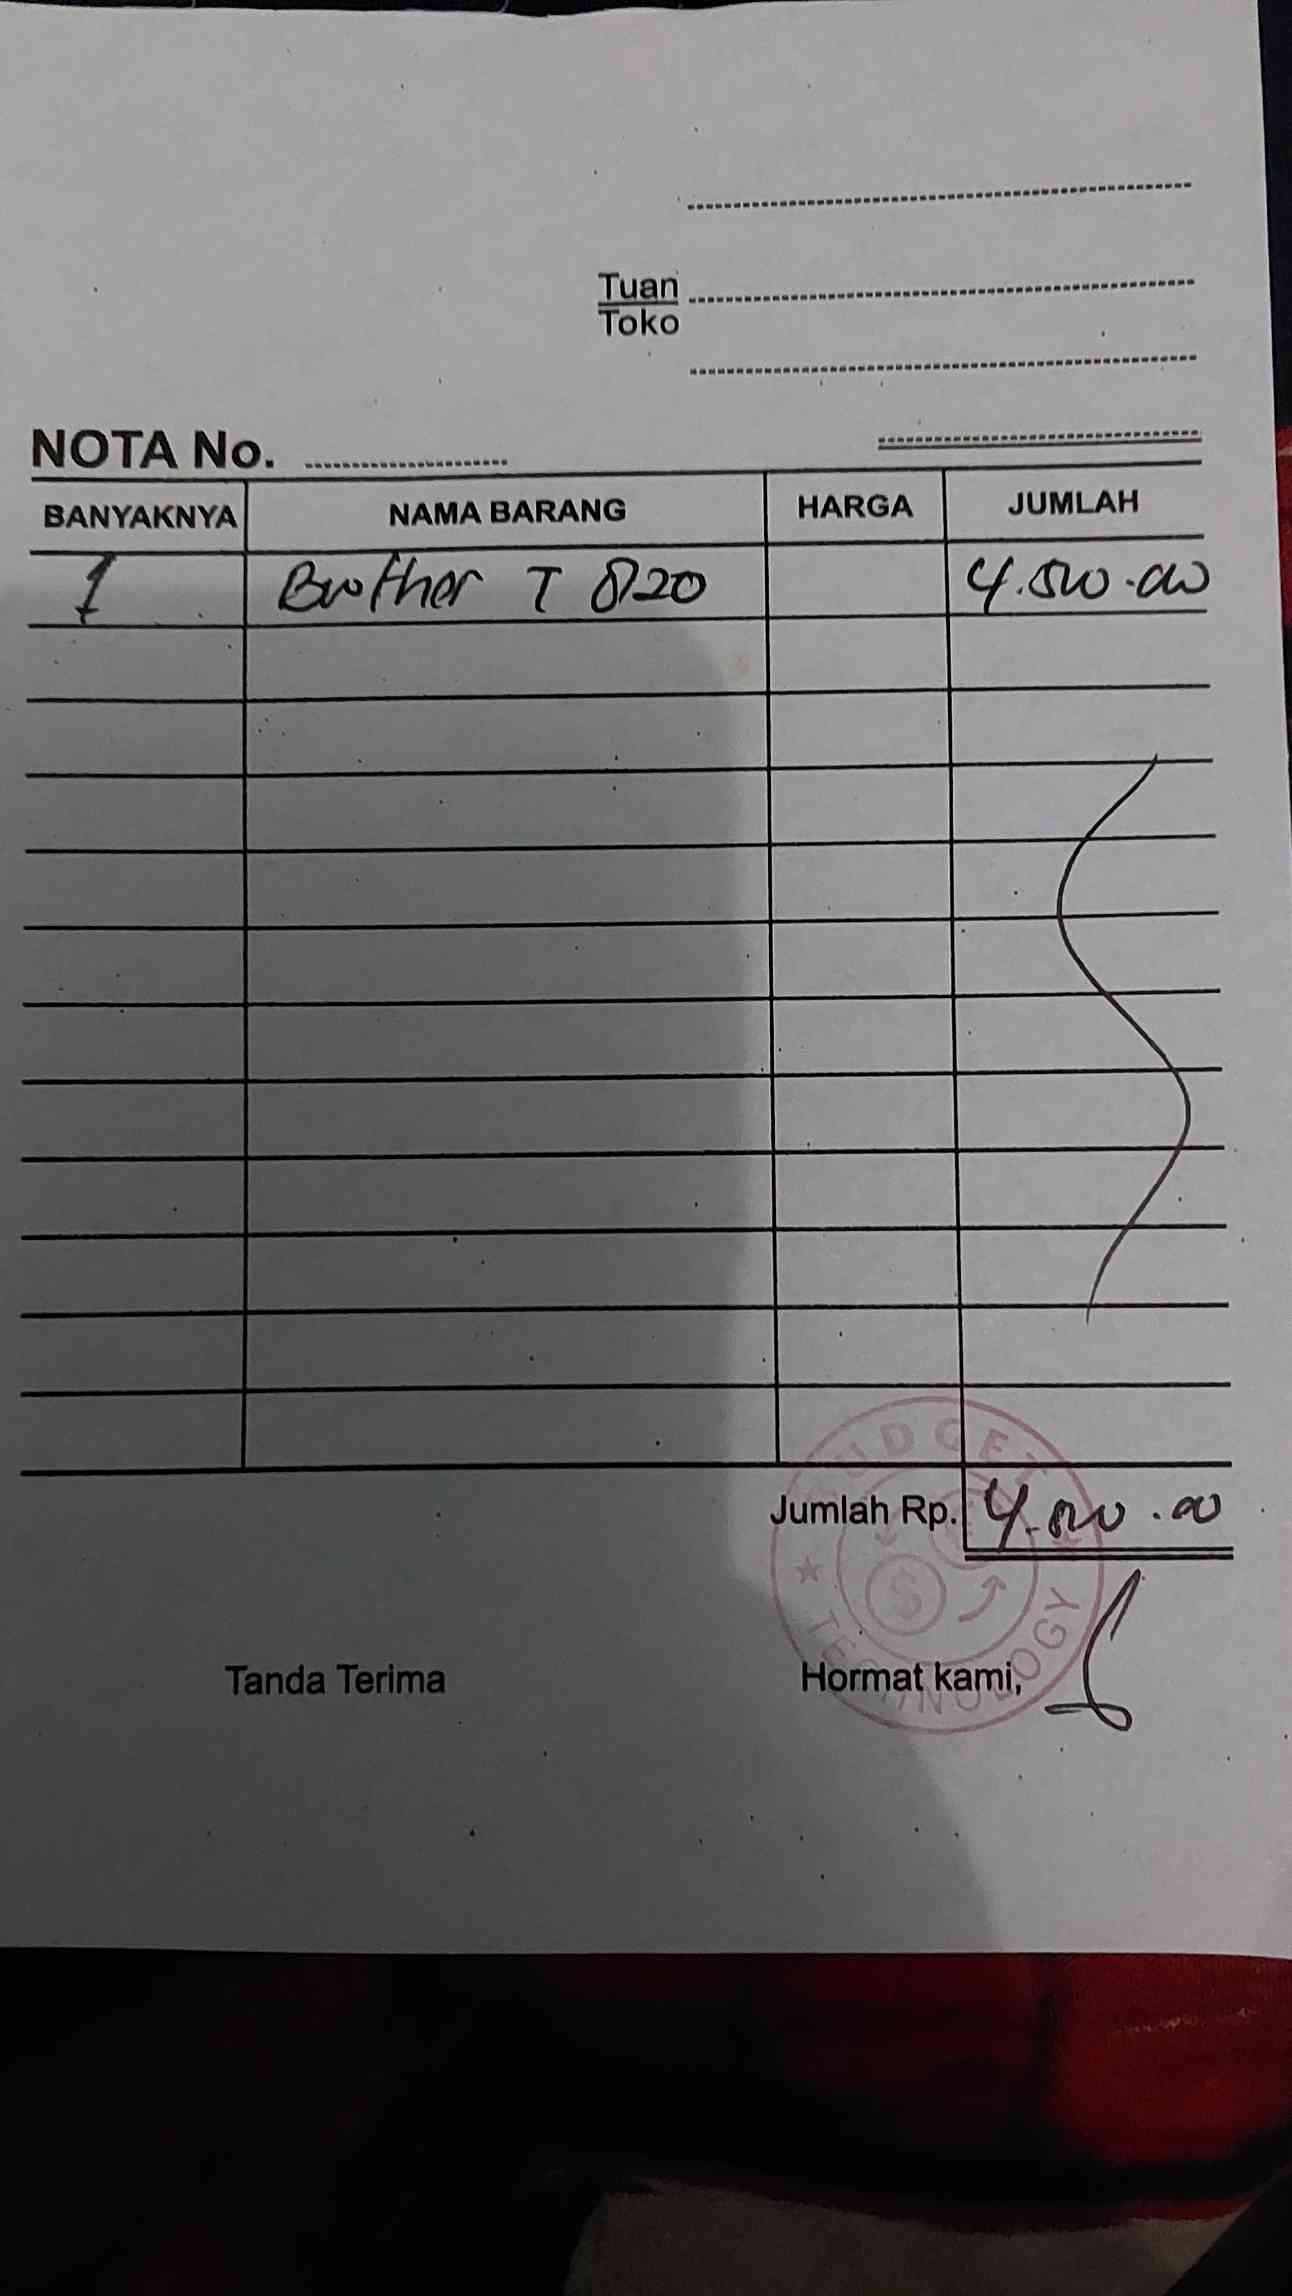 Tuan
Toko
NOTA No.
BANYAKNYA NAMA BARANG HARGA JUMLAH
1 Brother T 820 4.500.000
Jumlah Rp. 4.500.00
BUDGET
TECHNOLOGY
Tanda Terima Hormat kami,